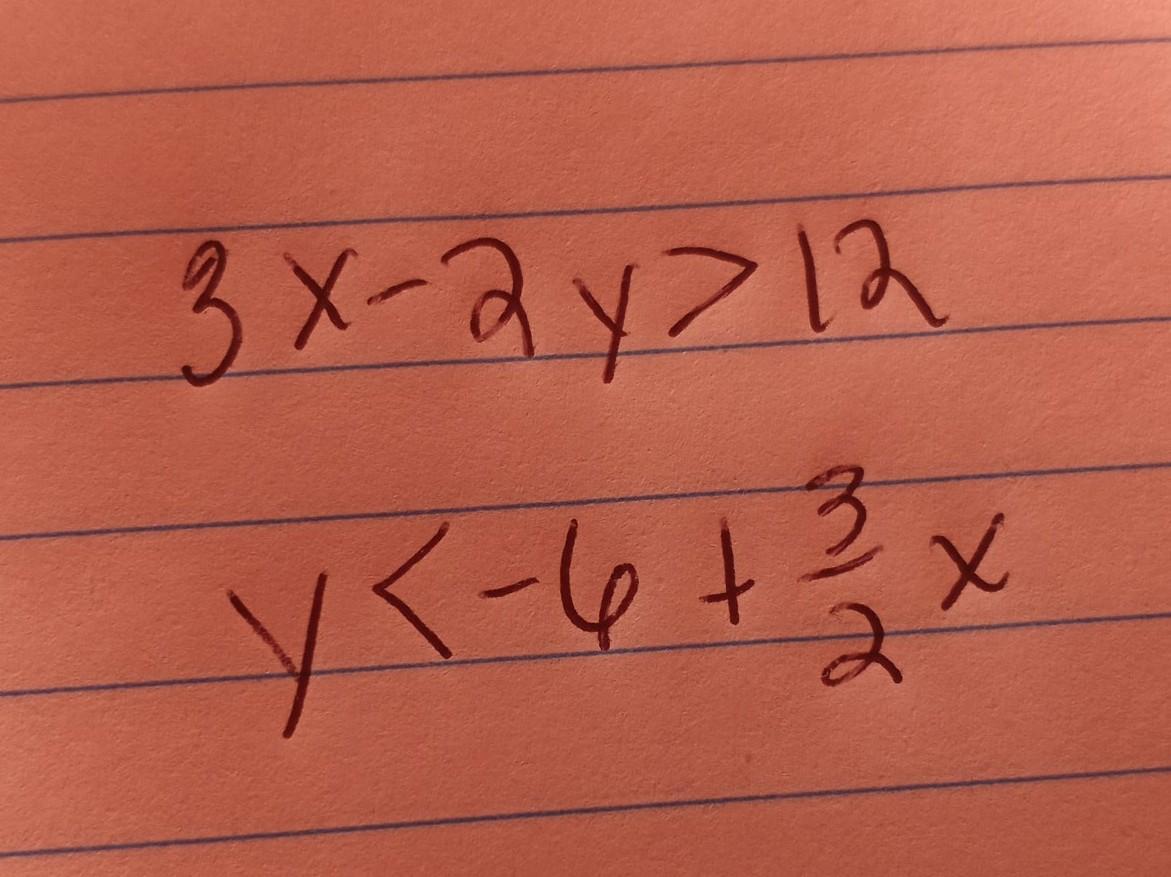 3x-2y>12
y<-6+3/2x